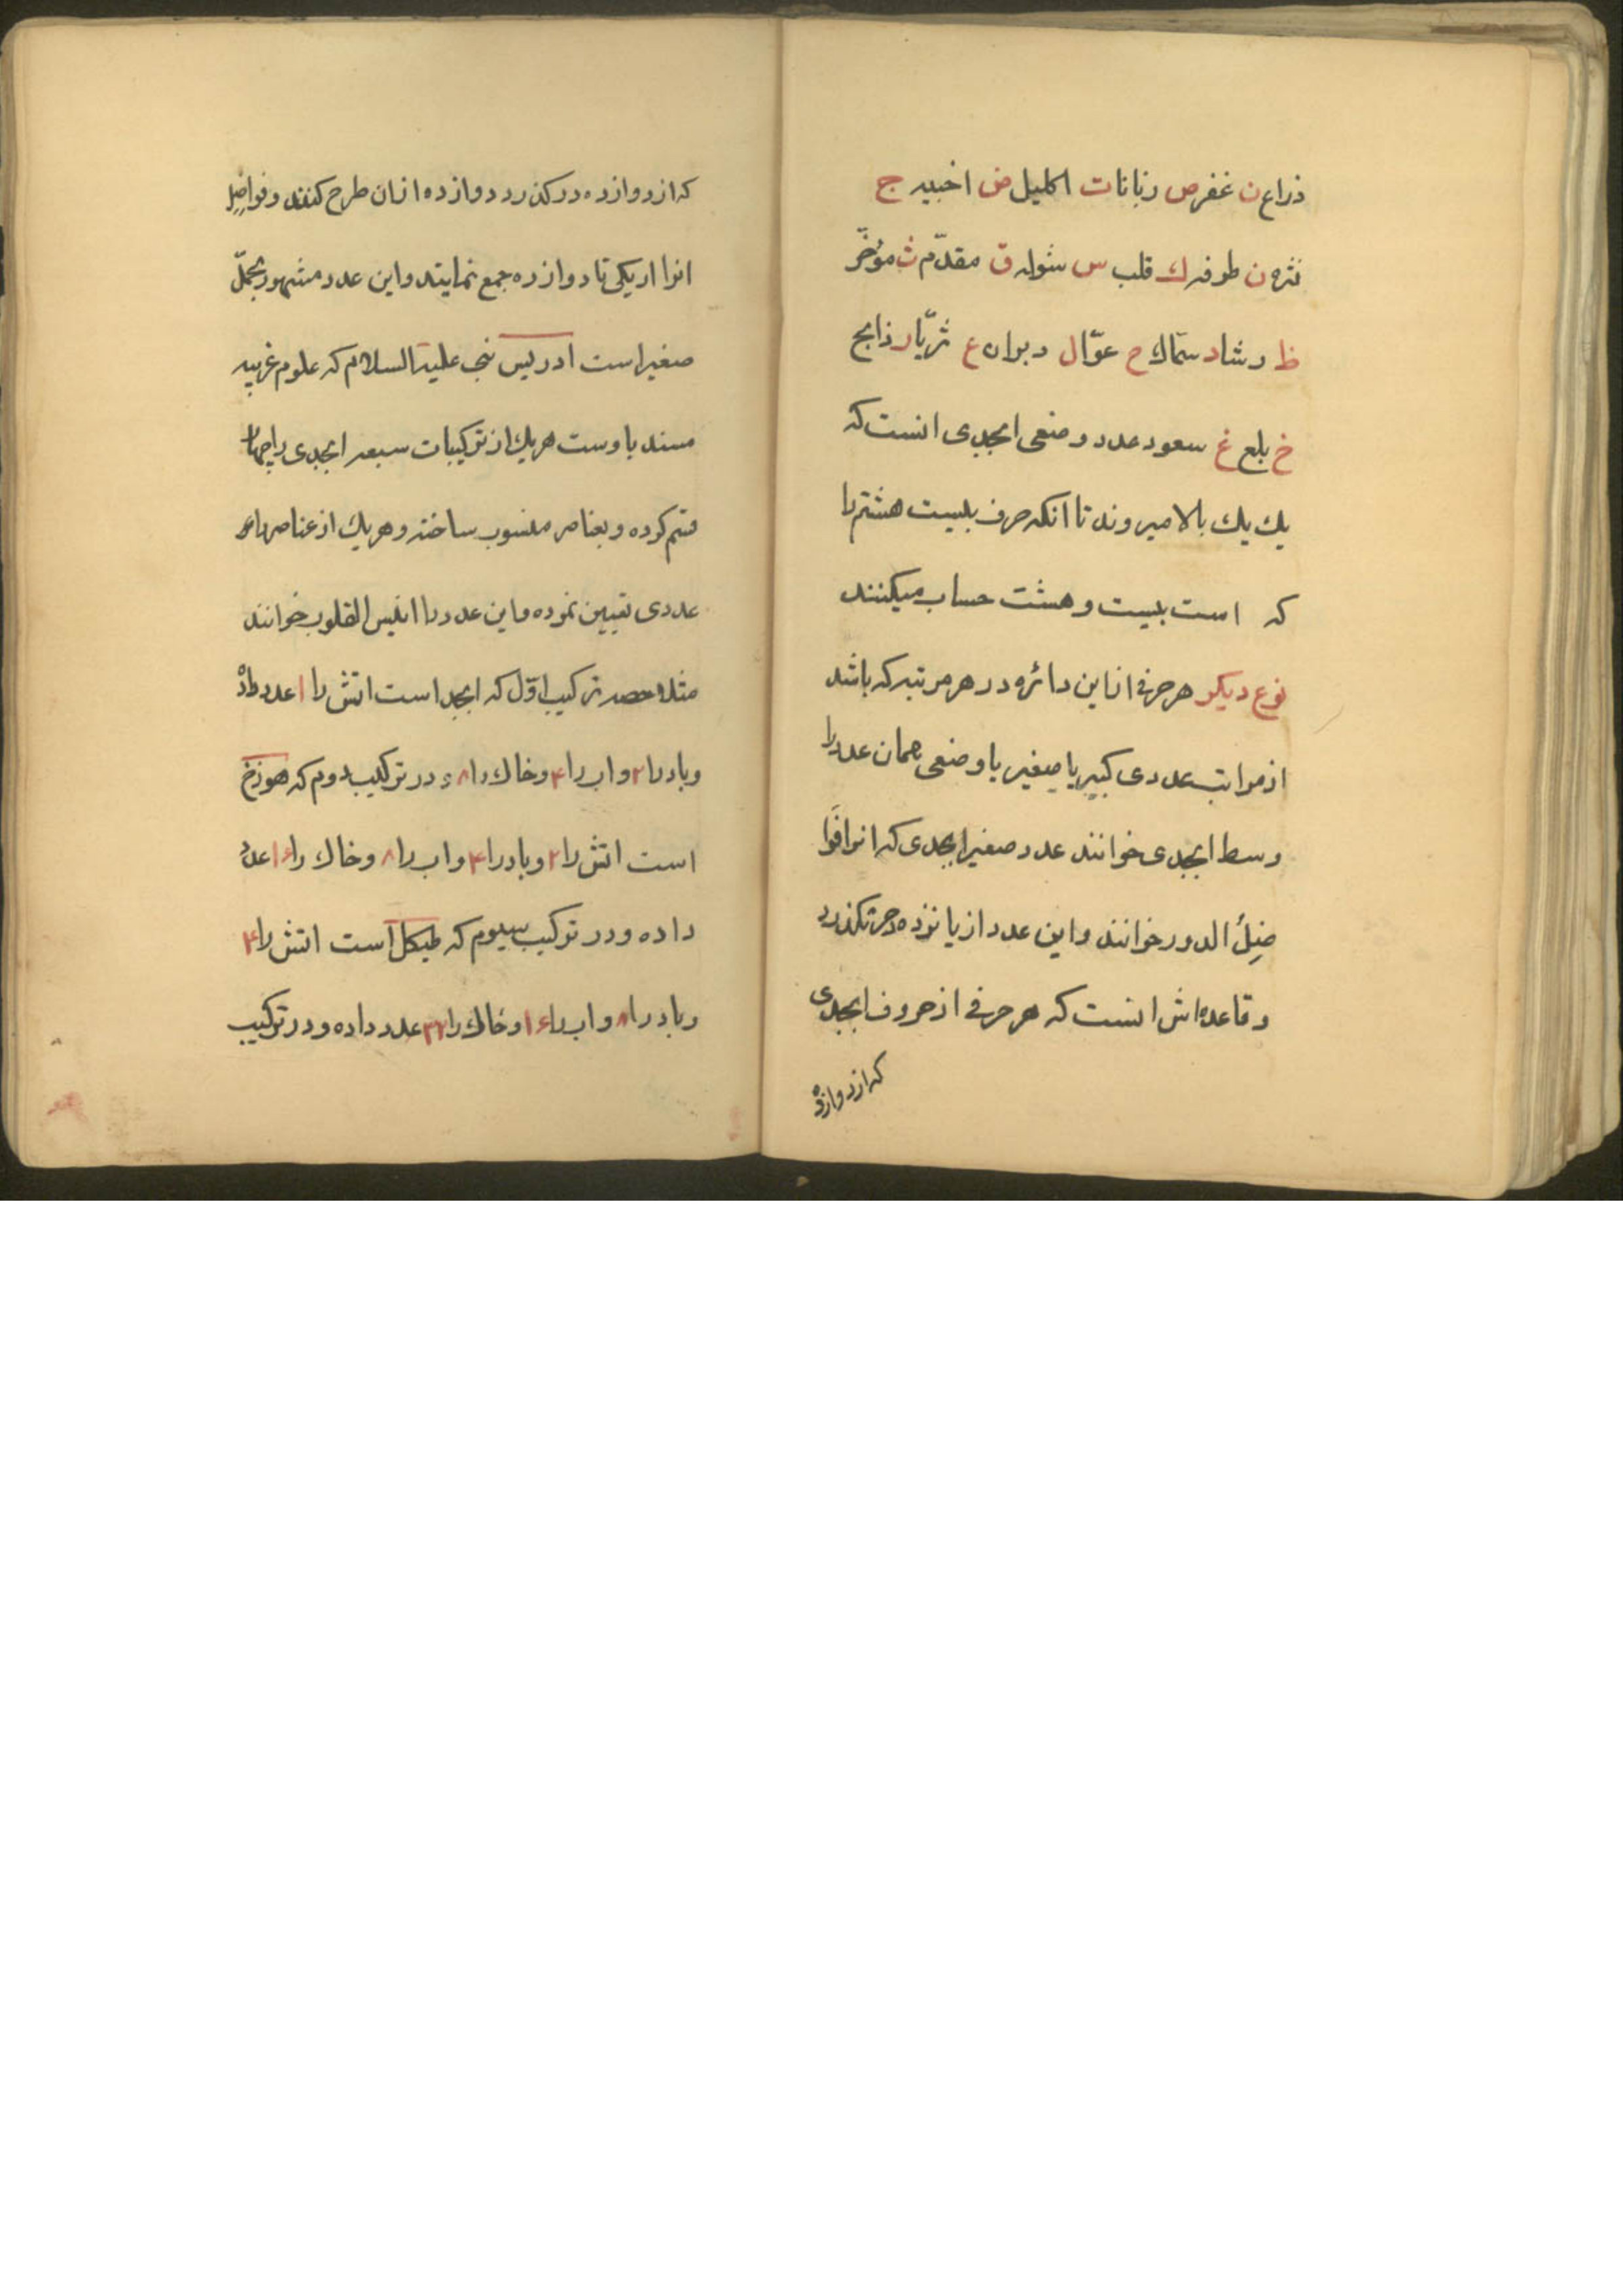 ذراع ن غفر ص زبانا ت اکلیل ض اخبیه ج
نثره ن طرفه ك قلب س شوله ق مقدّم ث مؤخّر
ظ رشا د سمّاك ح عوّا ل دبران ع ثریّا ر ذابح
خ بلع غ سعود عدد وضعی ابجدی انست که
یك یك بالا میروند تا انکه حرف بیست هشتم را
که است بیست و هشت حساب میکنند
نوع دیکر هر حرفی از این دائره در هر مرتبه که باشد
از مراتب عددی کبیر یا صغیر یا وضعی همان عدد را
وسط ابجدی خوانند عدد صغیر ابجدی که انرا فوا
ضِلُ الدور خوانند و این عدد از یانزده حرف نکذرد
و قاعده اش انست که هر حرفی از حروف ابجدی
که از دوازده
که از دوازده در کذرد دوازده از ان طرح کنند و فواضِل
انرا از یکی تا دوازده جمع نمایند و این عدد مشهور بجملّ
صغیر است ادریس نبی علیه السلام که علوم غریبه
مسند باوست هر یك از ترکیبات سبعه ابجدی را چهار
قسم کرده و بعناصر منسوب ساخته و هر یك از عناصر را
عددی تعیین نموده و این عدد را انیس القلوب خوانند
مثلا ترکیب اوّل که ابجد است اتش را ۱ عدد داده
و باد را ۲ و اب را ۴ و خاك را ۸ و در ترکیب دوم که هوزح
است اتش را ۲ و باد را ۴ و اب را ۸ و خاك را ۱۶ عدد
داده و در ترکیب سیوم که طیکل است اتش را ۴
و باد را ۸ و اب را ۱۶ و خاك را ۳۲ عدد داده و در ترکیب